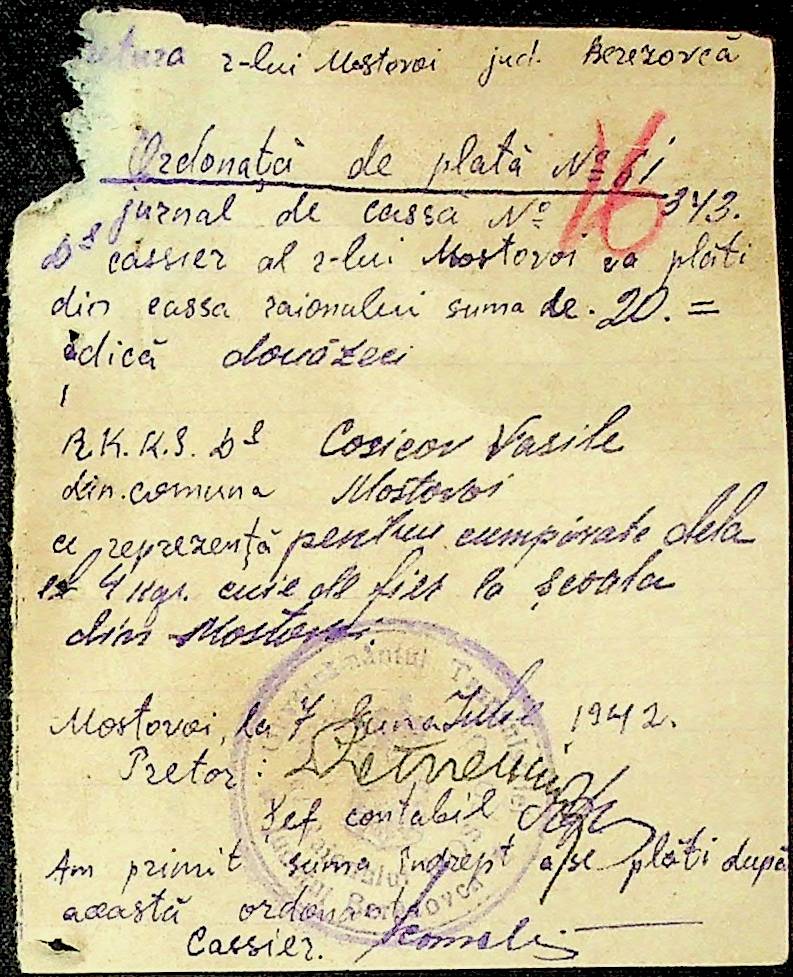 retura r-lui Mostovoi jud. Berezovca
Ordonață de plată № 61
16
jurnal de cassa № 343.
Dl cassier al r-lui Mostovoi va plăti
din cassa raionalui suma de. 20. =
adică douăzeci
R.K.K.S. Dl Cosicov Vasile
din comuna Mostovoi
ce reprezență pentru cumpărate dela
el 4 kgr. cuie de fier la școala
din Mostovoi
Mostovoi, la 7 luna Iulie 1942.
Pretor:
Șef contabil
Am primit suma îndrept a se plăti după
această ordonață
Cassier.